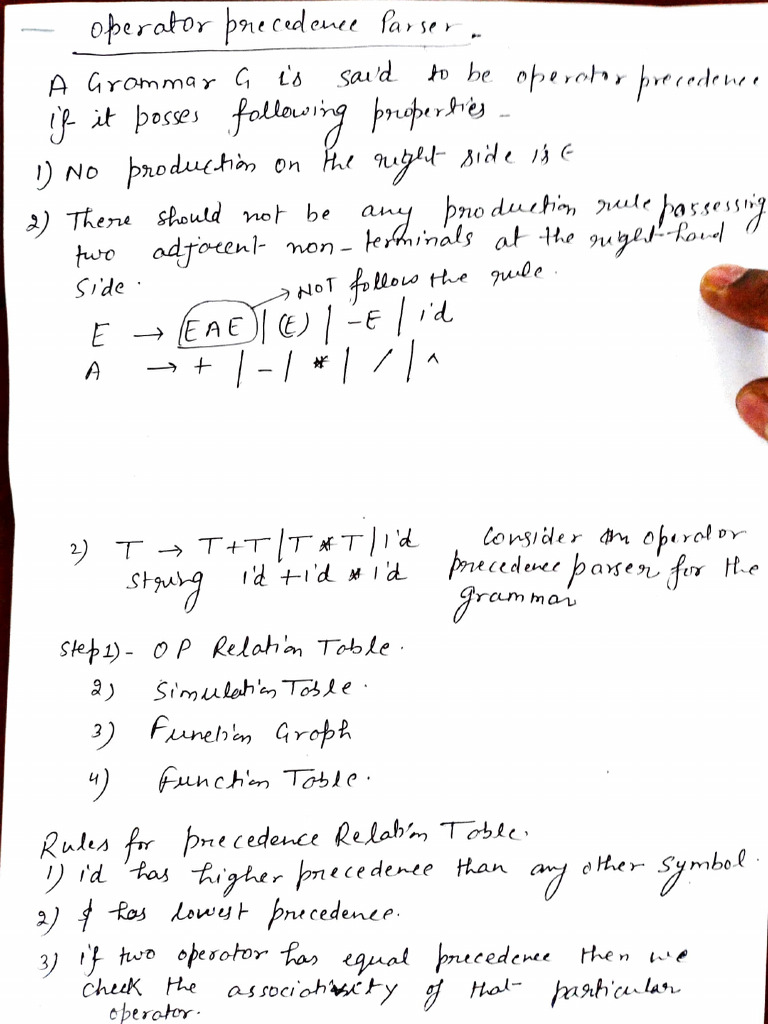 — operator precedence Parser.
A Grammar G is said to be operator precedence
if it posses following properties -
1) No production on the right side is ϵ
2) There should not be any production rule possessing
two adjacent non-terminals at the right-hand
side.
→ NOT follow the rule.
E → EAE | (E) | -E | id
A → + | - | * | / | ^
2) T → T+T | T*T | id
string id + id * id
Consider an operator
precedence parser for the
grammar
Step 1) - OP Relation Table.
2) Simulation Table.
3) Function Graph
4) Function Table.
Rules for precedence Relation Table.
1) id has higher precedence than any other symbol.
2) $ has lowest precedence.
3) if two operator has equal precedence then we
check the associativity of that particular
operator.